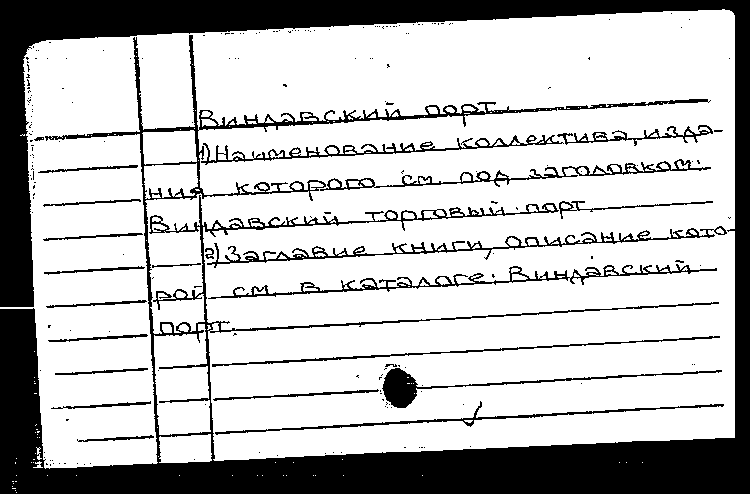 Виндавский порт.
1) Наименование коллектива, изда-
ния которого см. под заголовком:
Виндавский торговый порт.
2) Заглавие книги, описание кото-
рой см. в каталоге: Виндавский
порт.